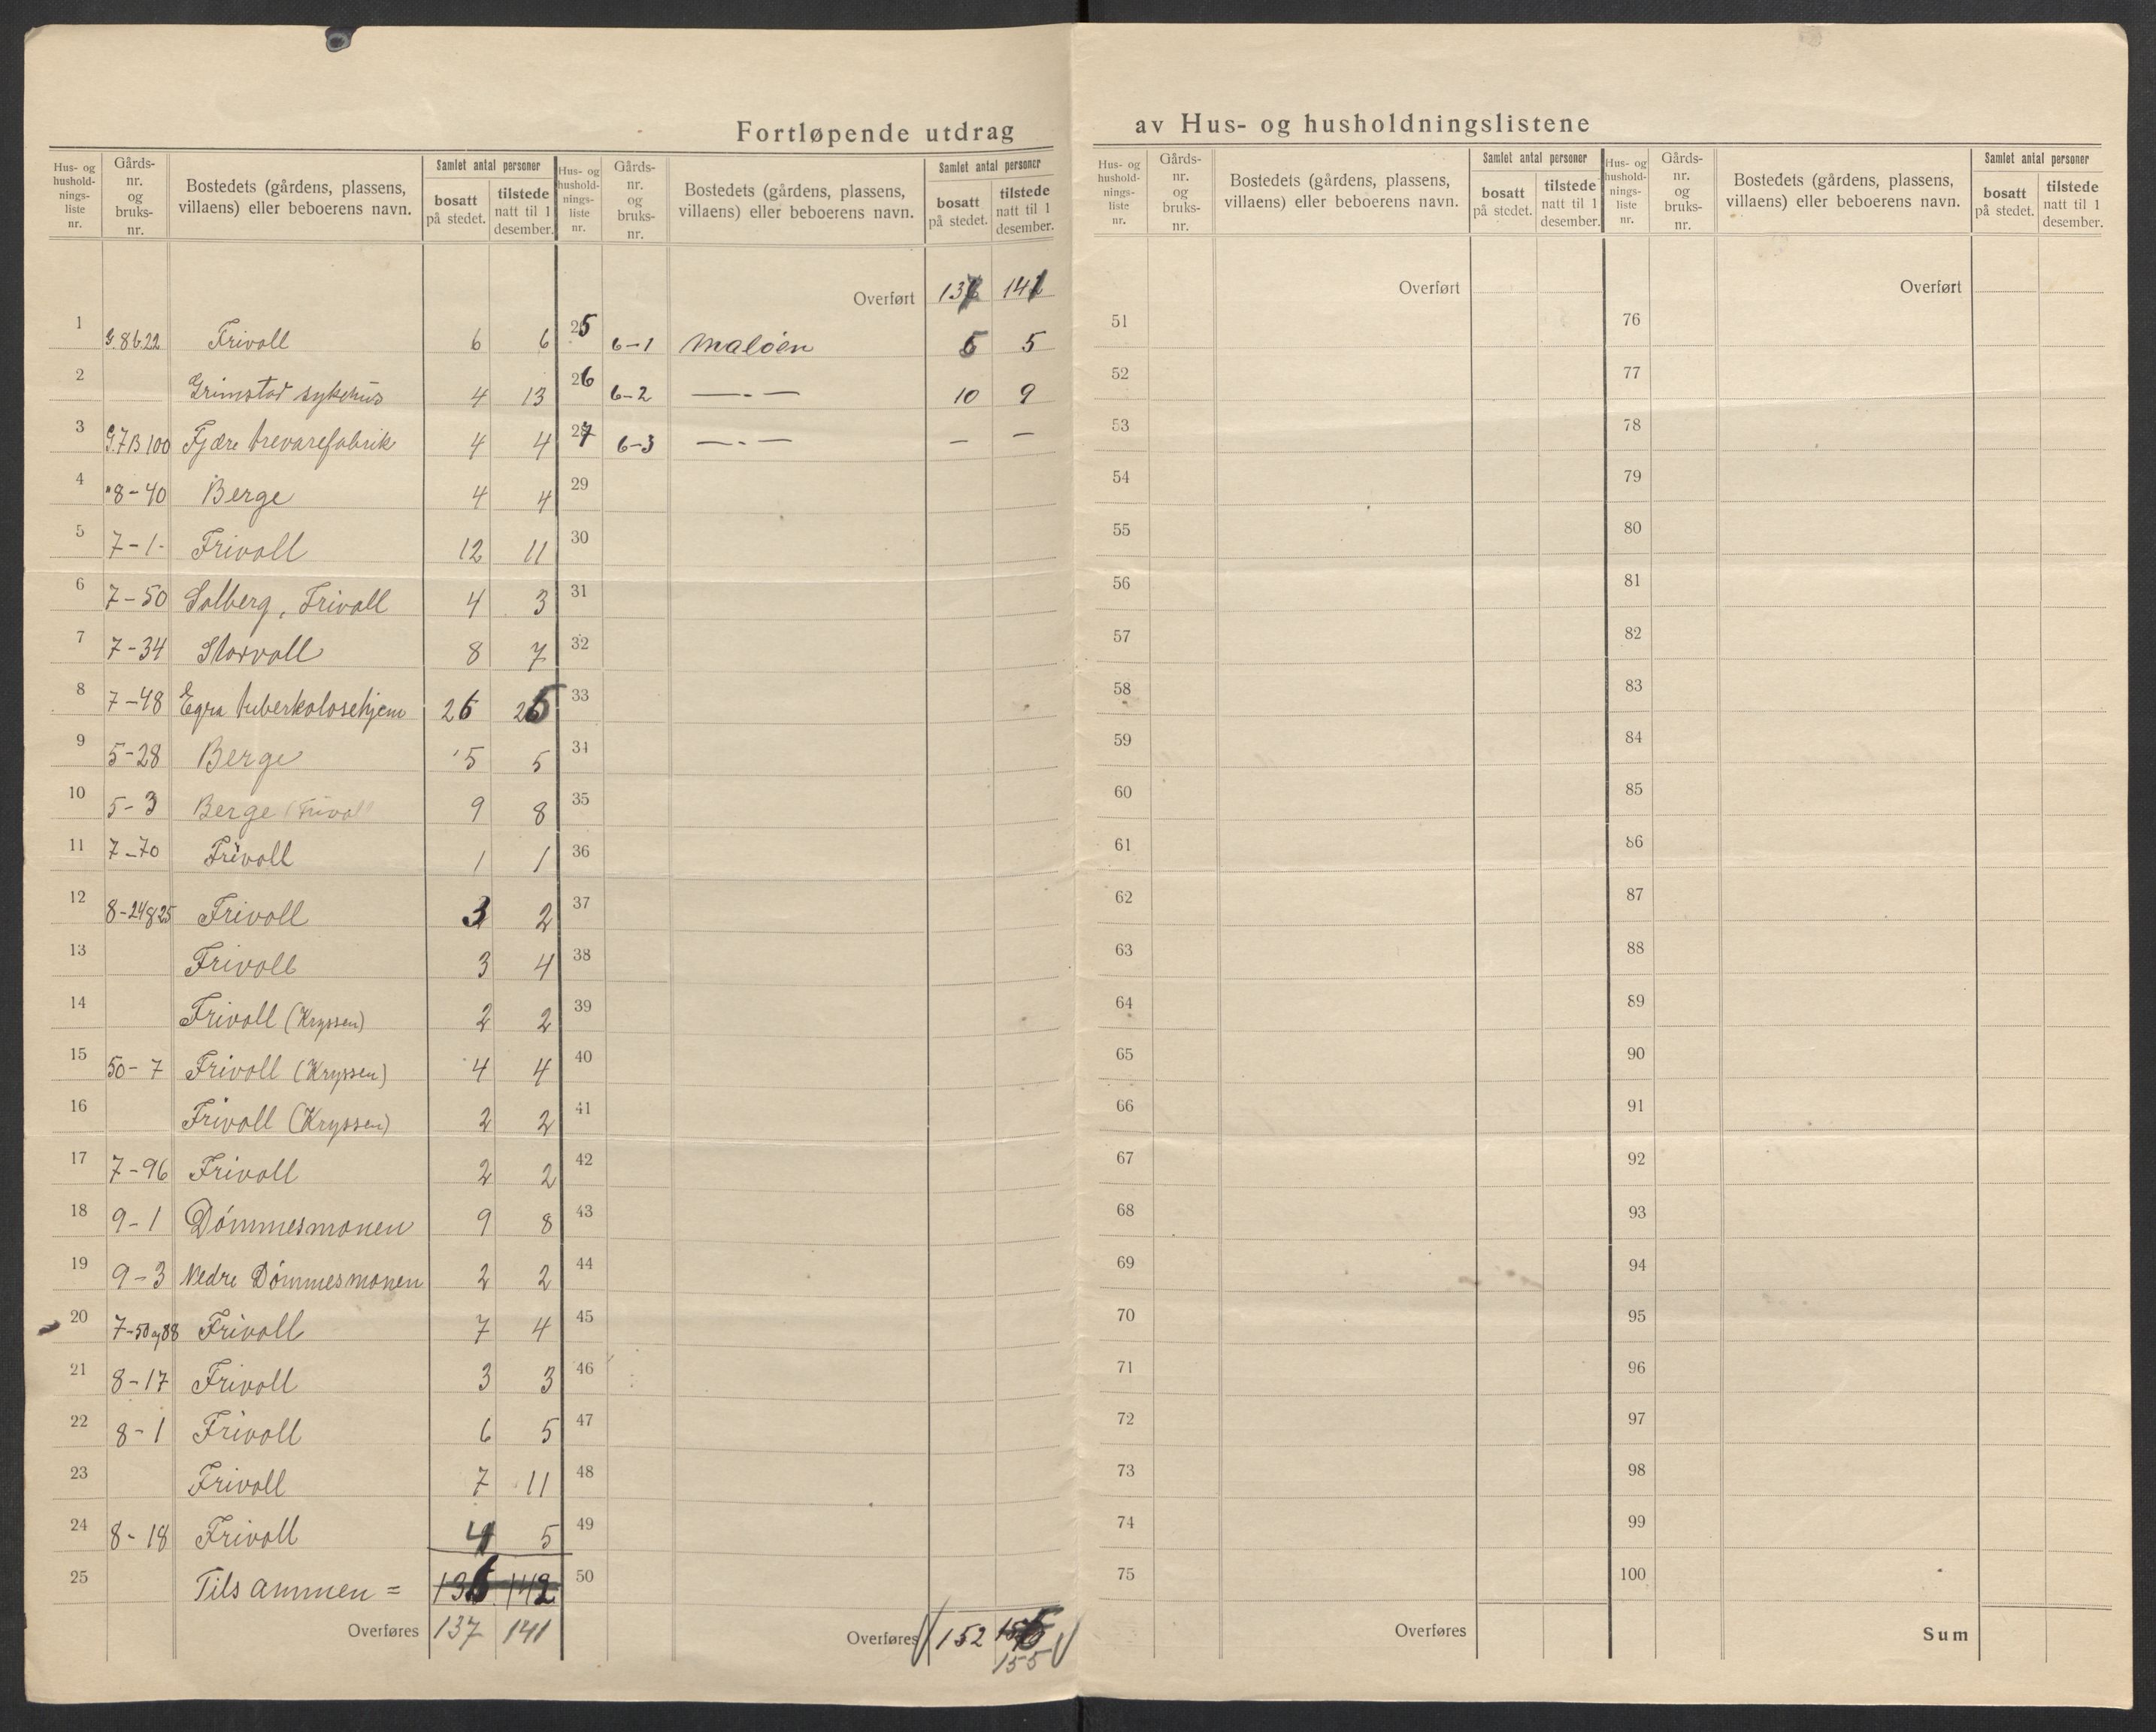 Fortløpende utdrag av Hus- og husholdningslistene
Hus- og hushold- nings- liste nr. Gårds- nr. og bruks- nr. Bostedets (gårdens, plassens, villaens) eller beboerens navn. Samlet antal personer bosatt på stedet. tilstede natt til 1 desember.
1 G.8b.22 Frivoll 6 6
2 Grimstad sykehus 4 13
3 G.7B100 Fjære trevarefabrik 4 4
4 "8-40 Berge 4 4
5 7-1- Frivoll 12 11
6 7-50 Solberg, Frivoll 4 3
7 7-34 Storvoll 8 7
8 7-48 Egra tuberkolosehjem 26 25
9 5-28 Berge 5 5
10 5-3 Berge (Frivoll 9 8
11 7-70 Frivoll 1 1
12 8-24&25 Frivoll 3 2
13 Frivoll 3 4
14 Frivoll (Kryssen) 2 2
15 50-7 Frivoll (Kryssen) 4 4
16 Frivoll (Kryssen) 2 2
17 7-96 Frivoll 2 2
18 9-1 Dómmesmonen 9 8
19 9-3 Nedre Dómmesmonen 2 2
20 7-50og88 Frivoll 7 4
21 8-17 Frivoll 3 3
22 8-1 Frivoll 6 5
23 Frivoll 7 11
24 8-18 Frivoll 4 5
25 Tilsammen = 136 142
Overføres 137 141
Hus- og hushold- nings- liste nr. Gårds- nr. og bruks- nr. Bostedets (gårdens, plassens, villaens) eller beboerens navn. Samlet antal personer bosatt på stedet. tilstede natt til 1 desember.
Overført 137 141
25 6-1 Maløen 5 5
26 6-2 —.— 10 9
27 6-3 —.— — —
29
30
31
32
33
34
35
36
37
38
39
40
41
42
43
44
45
46
47
48
49
50
Overføres 152
155
Hus- og hushold- nings- liste nr. Gårds- nr. og bruks- nr. Bostedets (gårdens, plassens, villaens) eller beboerens navn. Samlet antal personer bosatt på stedet. tilstede natt til 1 desember.
Overført
51
52
53
54
55
56
57
58
59
60
61
62
63
64
65
66
67
68
69
70
71
72
73
74
75
Overføres
Hus- og hushold- nings- liste nr. Gårds- nr. og bruks- nr. Bostedets (gårdens, plassens, villaens) eller beboerens navn. Samlet antal personer bosatt på stedet. tilstede natt til 1 desember.
Overført
76
77
78
79
80
81
82
83
84
85
86
87
88
89
90
91
92
93
94
95
96
97
98
99
100
Sum